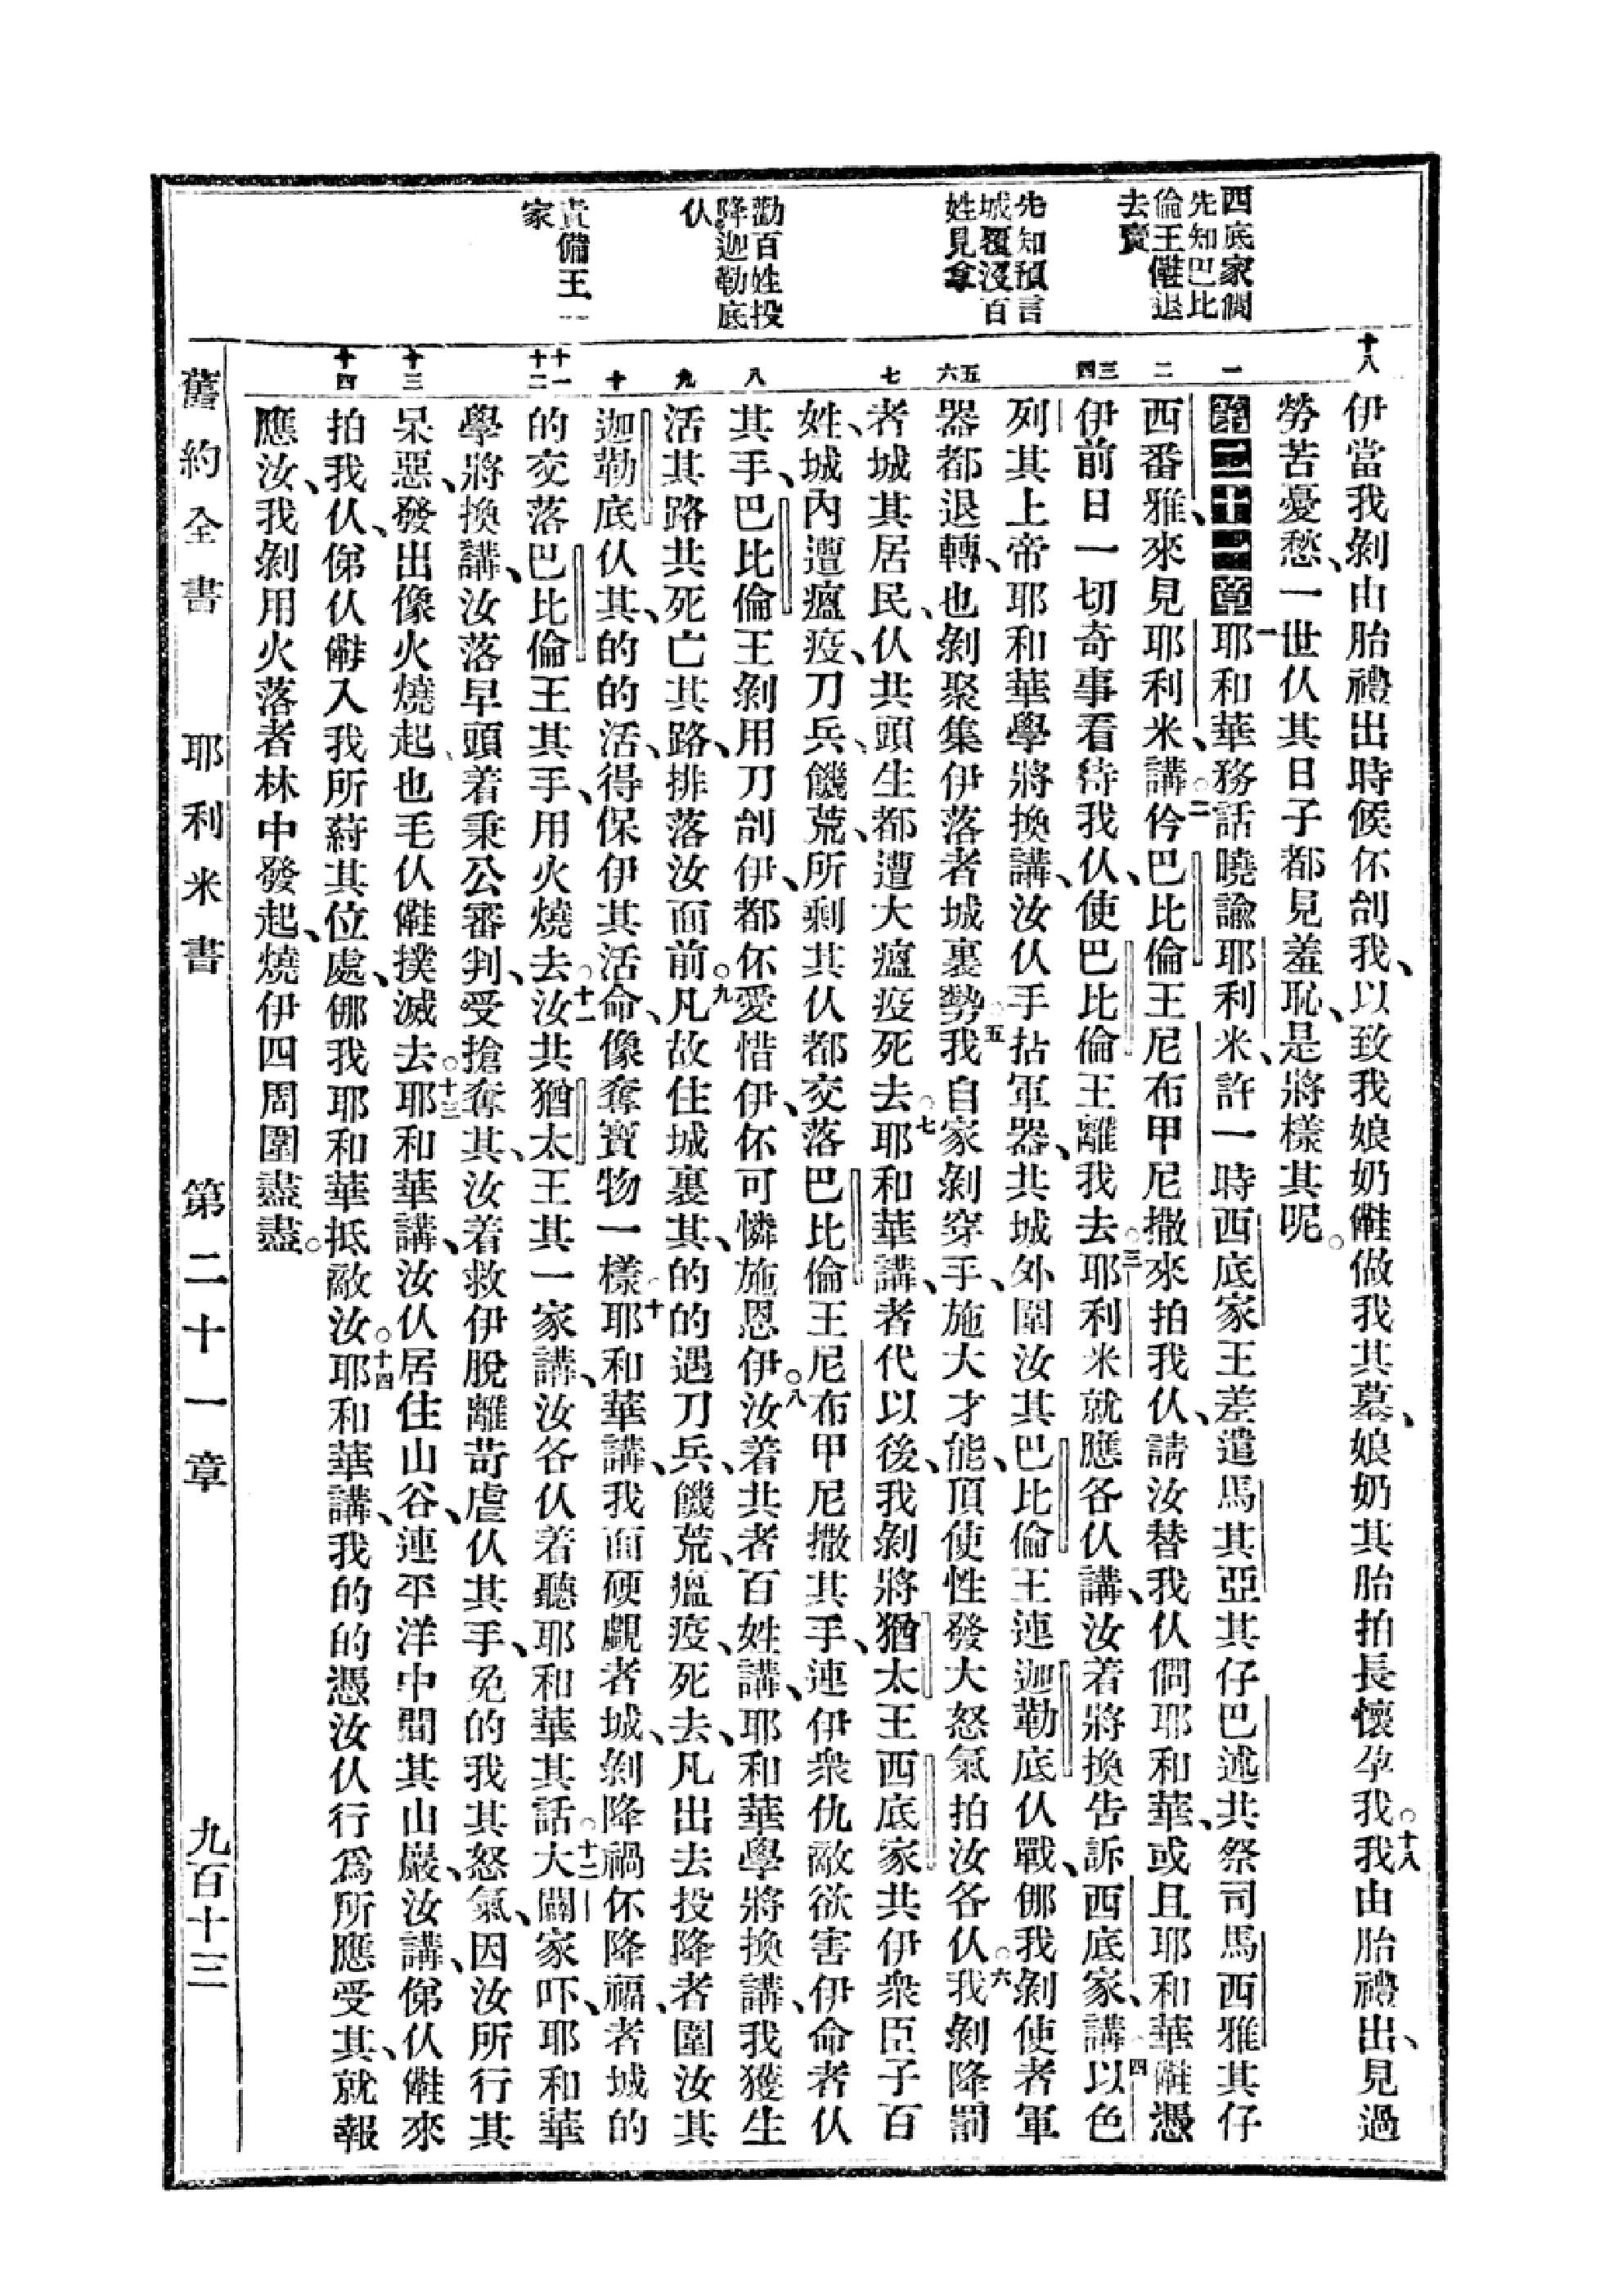 西底家僩
先知巴比
倫王㒕退
去賣
先知預言
城覆沒百
姓見拿
勸百姓投
降迦勒底
仈
責備王一
家
十八
一
二
三
四
五
六
七
八
九
十
十一
十二
十三
十四
伊當我剝由胎禮出時候伓刣我、以致我娘奶㒕做我其墓、娘奶其胎拍長懷孕我。十八我由胎禮出、見過
勞苦憂愁、一世仈其日子都見羞恥、是將樣其呢。
第二十一章 一耶和華務話曉諭耶利米、許一時西底家王差遣馬其亞其仔巴述共祭司馬西雅其仔
西番雅、來見耶利米、講。二仱巴比倫王尼布甲尼撒來拍我仈、請汝替我仈僩耶和華、或且耶和華㒕憑
伊前日一切奇事看待我仈、使巴比倫王離我去。三耶利米就應各仈講、汝着將換告訴西底家、講。四以色
列其上帝耶和華學將換講、汝仈手拈軍器、共城外圍汝其巴比倫王連迦勒底仈戰、㑚我剝使者軍
器都退轉、也剝聚集伊落者城裏勢。五我自家剝穿手、施大才能、頂使性發大怒氣拍汝各仈。六我剝降罰
者城其居民、仈共頭生都遭大瘟疫死去。七耶和華講、者代以後、我剝將猶太王西底家共伊衆臣子百
姓、城內遭瘟疫、刀兵、饑荒、所剩其仈都交落巴比倫王尼布甲尼撒其手、連伊衆仇敵欲害伊命者仈
其手、巴比倫王剝用刀刣伊、都伓愛惜伊、伓可憐施恩伊。八汝着共者百姓講、耶和華學將換講、我獲生
活其路共死亡其路、排落汝面前。九凡故住城裏其、的的遇刀兵、饑荒、瘟疫、死去、凡出去投降者圍汝其
迦勒底仈其、的的活、得保伊其活命、像奪寶物一樣。十耶和華講、我面硬覷者城、剝降禍伓降福、者城的
的交落巴比倫王其手、用火燒去。十一汝共猶太王其一家講、汝各仈着聽耶和華其話。十二大闢家吓、耶和華
學將換講、汝落早頭着秉公審判、受搶奪其、汝着救伊脫離苛虐仈其手、免的我其怒氣、因汝所行其
呆惡、發出像火燒起、也毛仈㒕撲滅去。十三耶和華講、汝仈居住山谷、連平洋中間其山巖、汝講、俤仈㒕來
拍我仈、俤仈㒕入我所蒔其位處、㑚我耶和華抵敵汝。十四耶和華講、我的的憑汝仈行爲所應受其、就報
應汝、我剝用火落者林中發起、燒伊四周圍盡盡。
舊約全書 耶利米書 第二十一章 九百十三